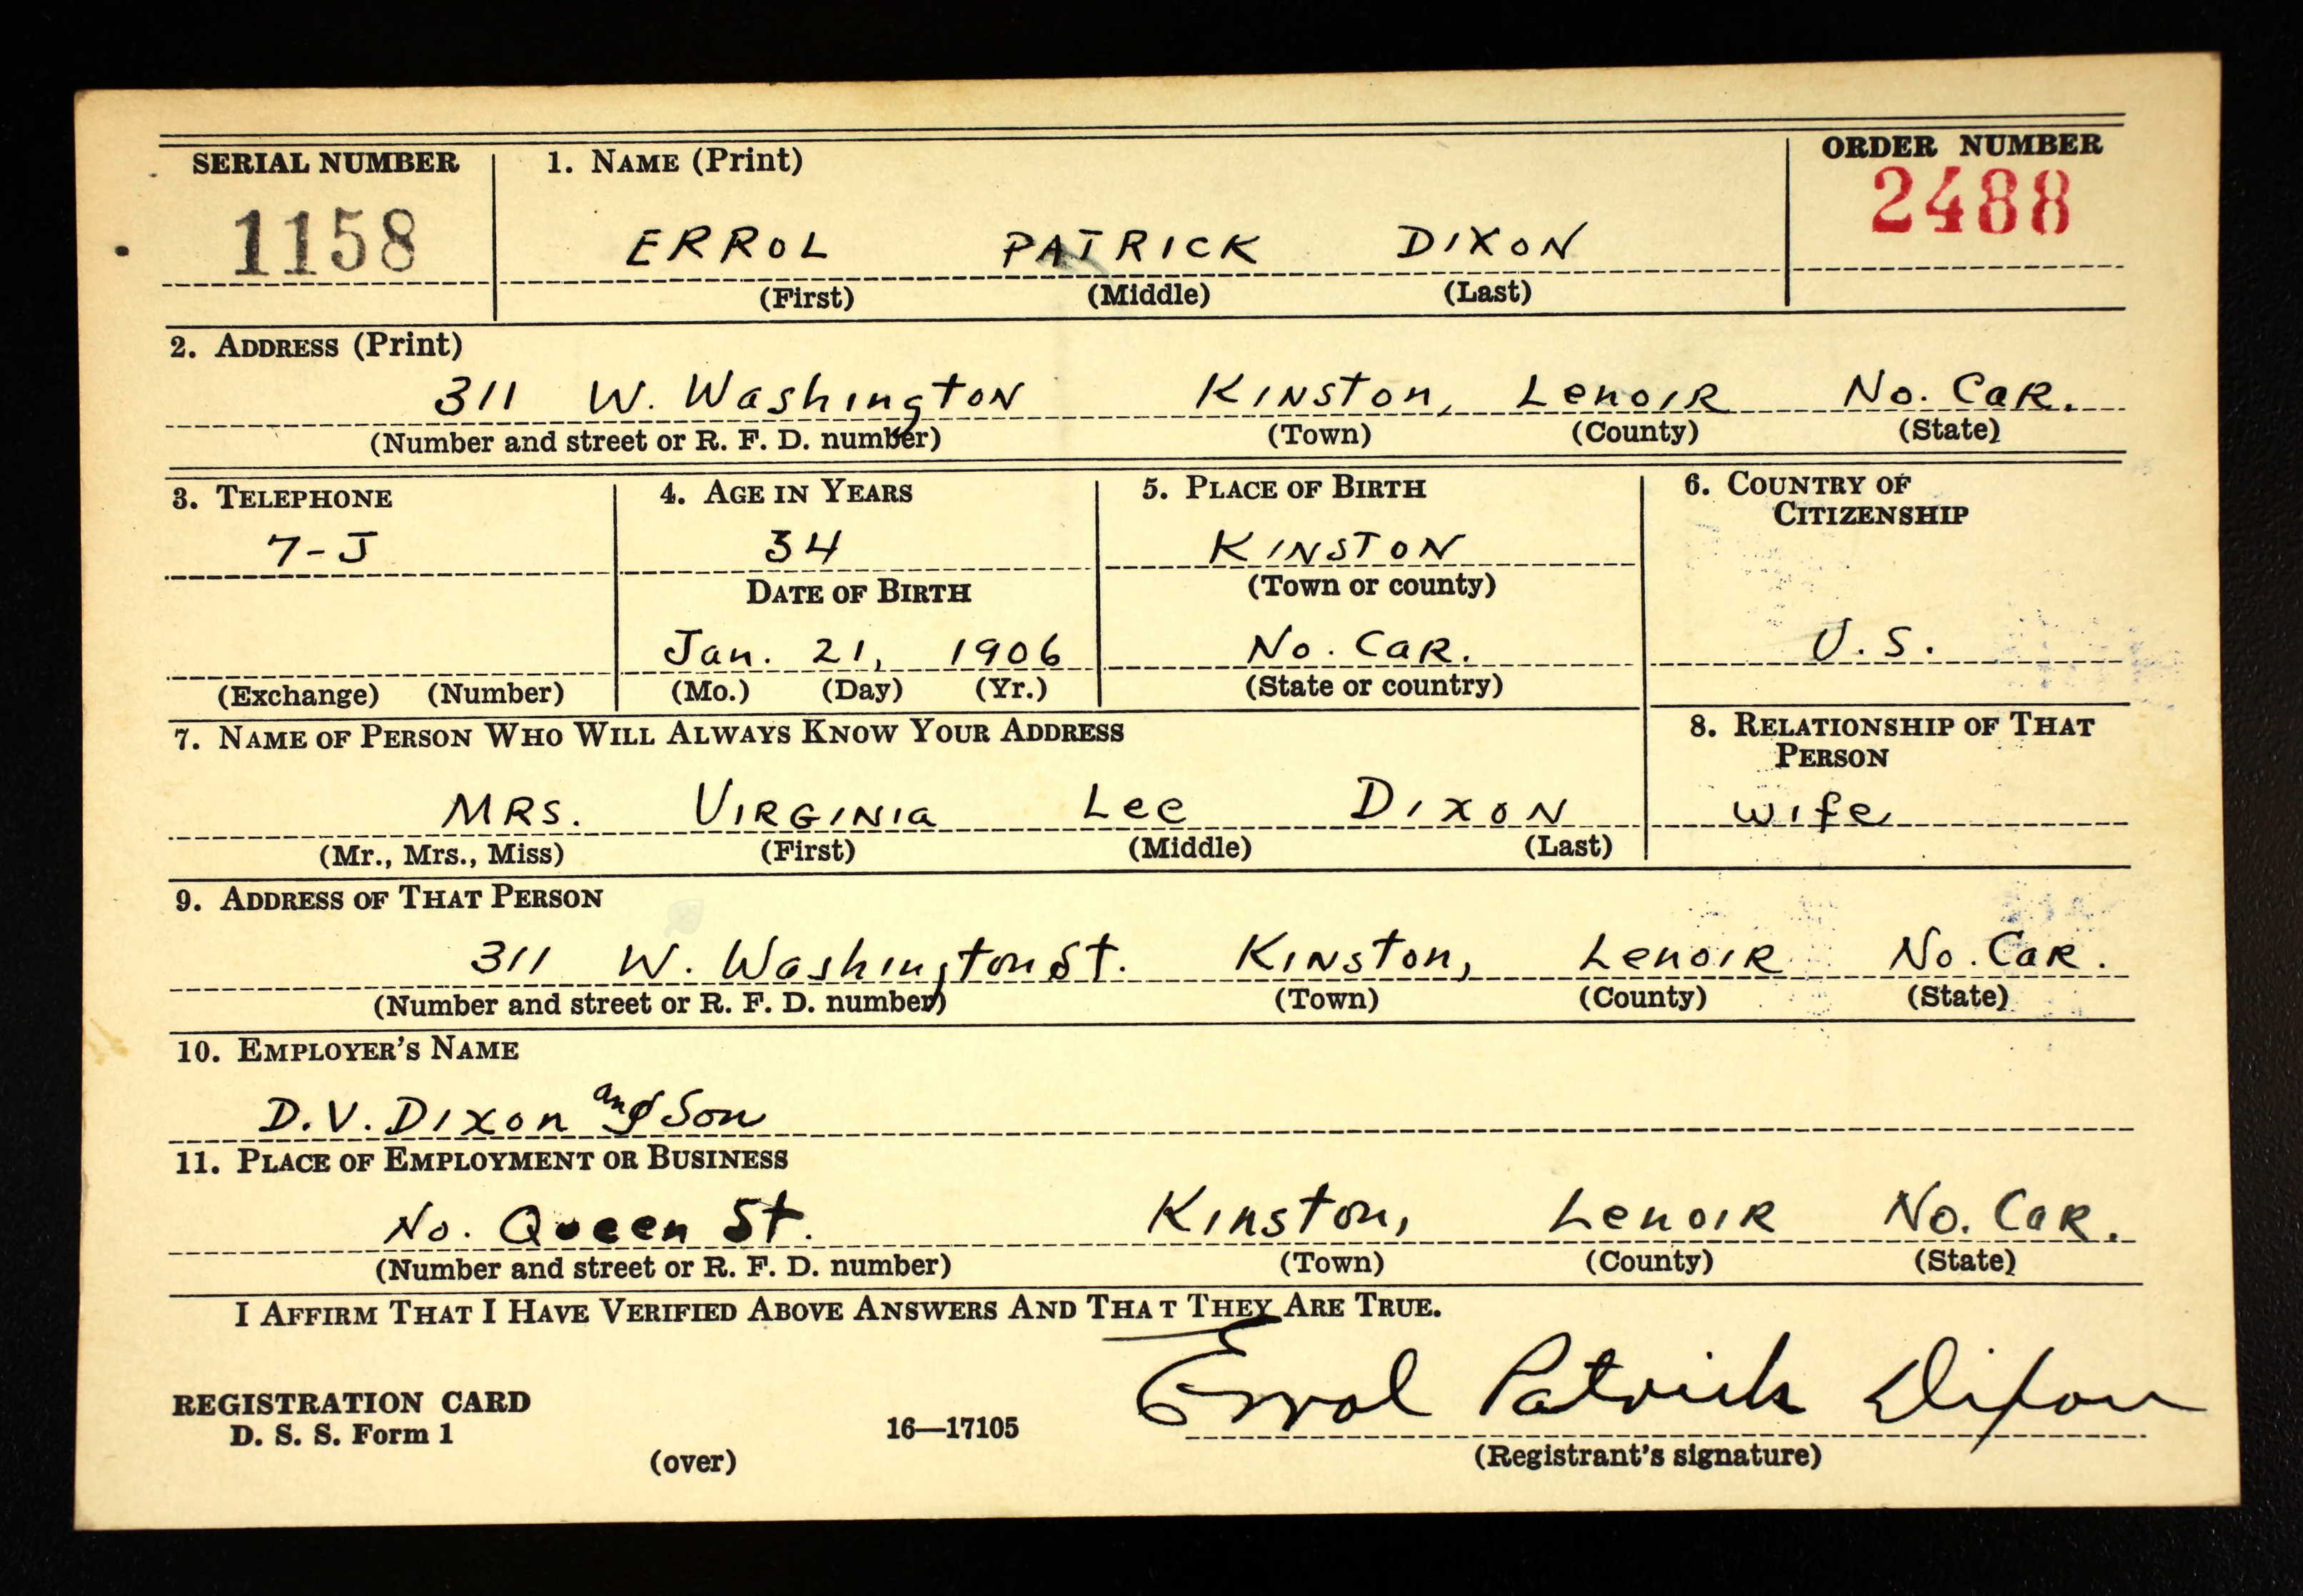 SERIAL NUMBER 1. NAME (Print) ORDER NUMBER
1158 ERROL PATRICK DIXON 2488
(First) (Middle) (Last)
2. ADDRESS (Print)
311 W. Washington Kinston, Lenoir No. Car.
(Number and street or R. F. D. number) (Town) (County) (State)
3. TELEPHONE 4. AGE IN YEARS 5. PLACE OF BIRTH 6. COUNTRY OF
CITIZENSHIP
7-J 34 KINSTON
DATE OF BIRTH (Town or county)
Jan. 21, 1906 No. Car. U.S.
(Exchange) (Number) (Mo.) (Day) (Yr.) (State or country)
7. NAME OF PERSON WHO WILL ALWAYS KNOW YOUR ADDRESS 8. RELATIONSHIP OF THAT
PERSON
MRS. VIRGINIA Lee DIXON wife
(Mr., Mrs., Miss) (First) (Middle) (Last)
9. ADDRESS OF THAT PERSON
311 W. Washington St. Kinston, Lenoir No. Car.
(Number and street or R. F. D. number) (Town) (County) (State)
10. EMPLOYER'S NAME
D.V. Dixon and Son
11. PLACE OF EMPLOYMENT OR BUSINESS
No. Queen St. Kinston, Lenoir No. Car.
(Number and street or R. F. D. number) (Town) (County) (State)
I AFFIRM THAT I HAVE VERIFIED ABOVE ANSWERS AND THAT THEY ARE TRUE.
Errol Patrick Dixon
REGISTRATION CARD
D. S. S. Form 1 16—17105
(over) (Registrant's signature)